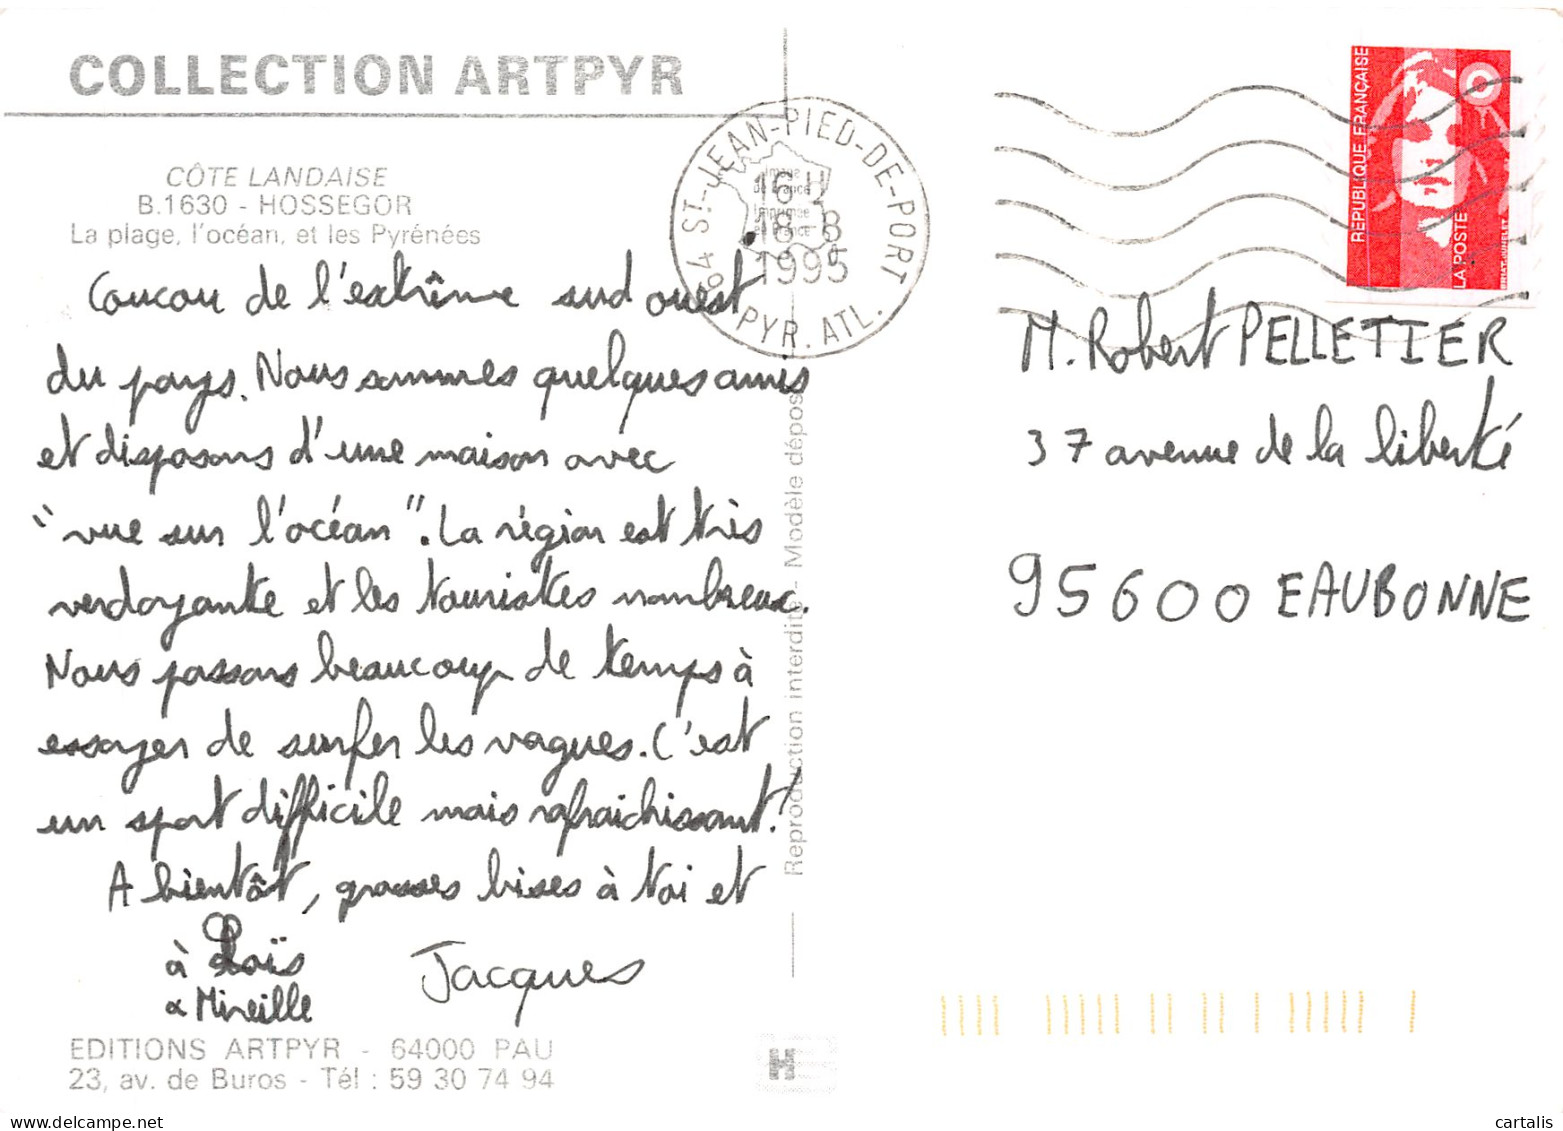 COLLECTION ARTPYR
CÔTE LANDAISE
B.1630 - HOSSEGOR
La plage, l'océan, et les Pyrénées
Coucou de l'extrême sud ouest
du pays. Nous sommes quelques amis
et disposons d'une maison avec
"vue sur l'océan". La région est très
verdoyante et les touristes nombreux.
Nous passons beaucoup de temps à
essayer de surfer les vagues. C'est
un sport difficile mais rafraichissant!
A bientôt, grosses bises à toi et
à Loïs
& Mireille
Jacques
EDITIONS ARTPYR - 64000 PAU
23, av. de Buros - Tél : 59 30 74 94
Reproduction interdite - Modèle déposé
64 ST-JEAN-PIED-DE-PORT
16 H
18-8
1995
PYR. ATL.
REPUBLIQUE FRANÇAISE
LA POSTE
M. Robert PELLETIER
37 avenue de la liberté
95600 EAUBONNE
H
cartalis